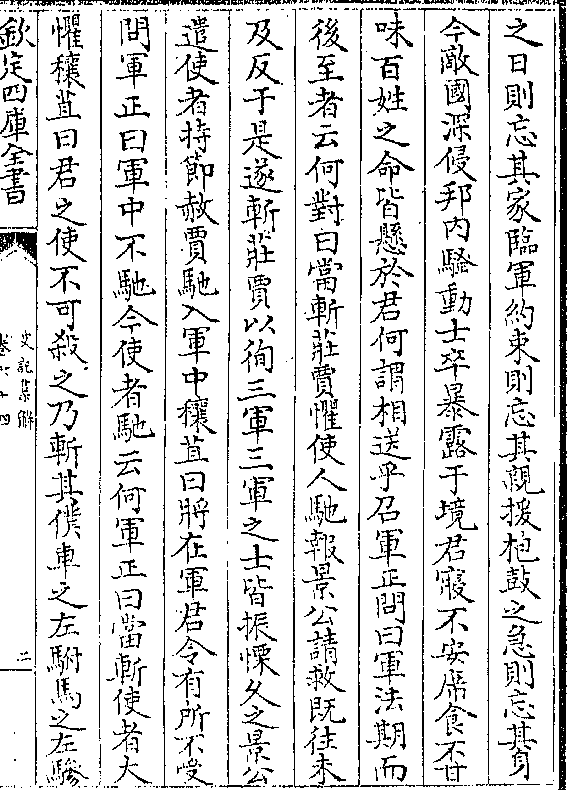 之日則忘其家臨軍約束則忘其親援枹鼓之急則忘其身
今敵國深侵邦内騷動士卒暴露于境君寢不安席食不甘
味百姓之命皆懸於君何謂相送乎召軍正問曰軍法期而
後至者云何對曰當斬莊賈懼使人馳報景公請救既往未
及反于是遂斬莊賈以徇三軍三軍之士皆振慄久之景公
遣使者持節赦賈馳入軍中穰苴曰將在軍君令有所不受
問軍正曰軍中不馳今使者馳云何軍正曰當斬使者大
懼穰苴曰君之使不可殺之乃斬其僕車之左駙馬之左驂
欽定四庫全書
史記集解
卷六十四
二